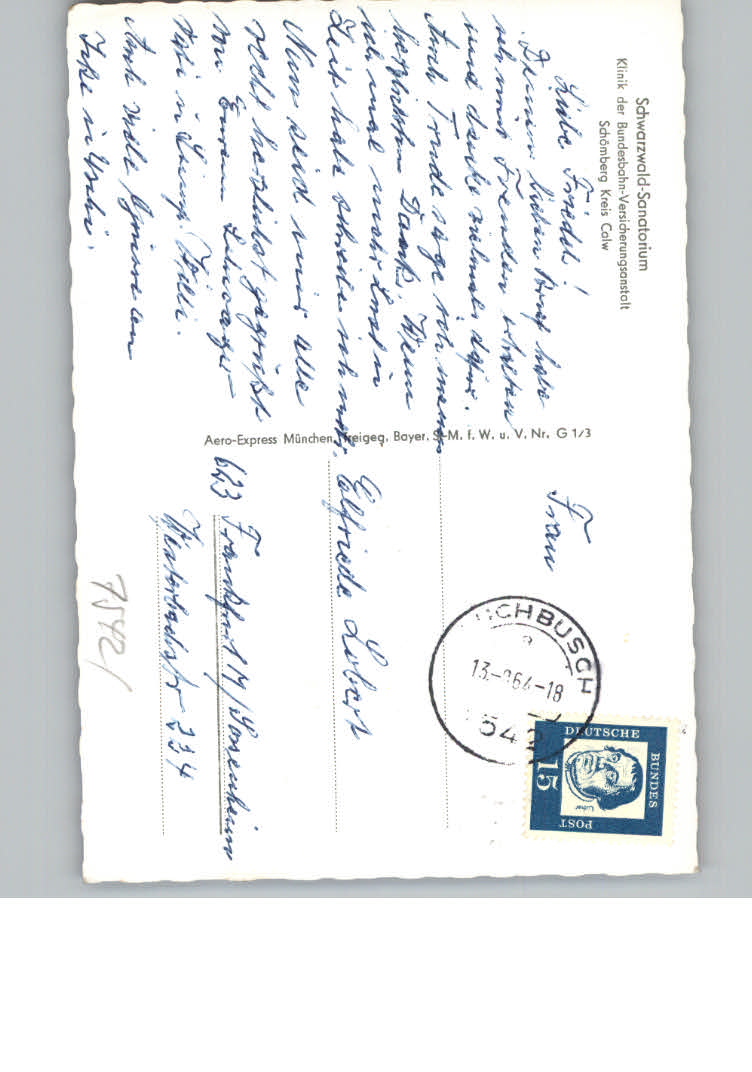 Schwarzwald-Sanatorium
Klinik der Bundesbahn-Versicherungsanstalt
Schömberg Kreis Calw
Liebe Friedel!
Deinen lieben Brief habe
ich mit Freuden erhalten
und danke vielmals dafür.
Auch Trude sage ich meinen
herzlichsten Dank. Wenn
ich mal mehr Lust u
Zeit habe schreibe ich mehr.
Nun seid mir alle
recht herzlichst gegrüßt
von Eurem Schwager
Willi.
Auch viele Grüsse an
Aero-Express München, Freigeg. Bayer. St. M. f. W. u. V. Nr. G 1/3
Frau
Elfriede
623 Frankfurt M/Sossenheim
334
HCHBUSCH
64-18
542
DEUTSCHE
BUNDES
POST
15
Luther
7542/